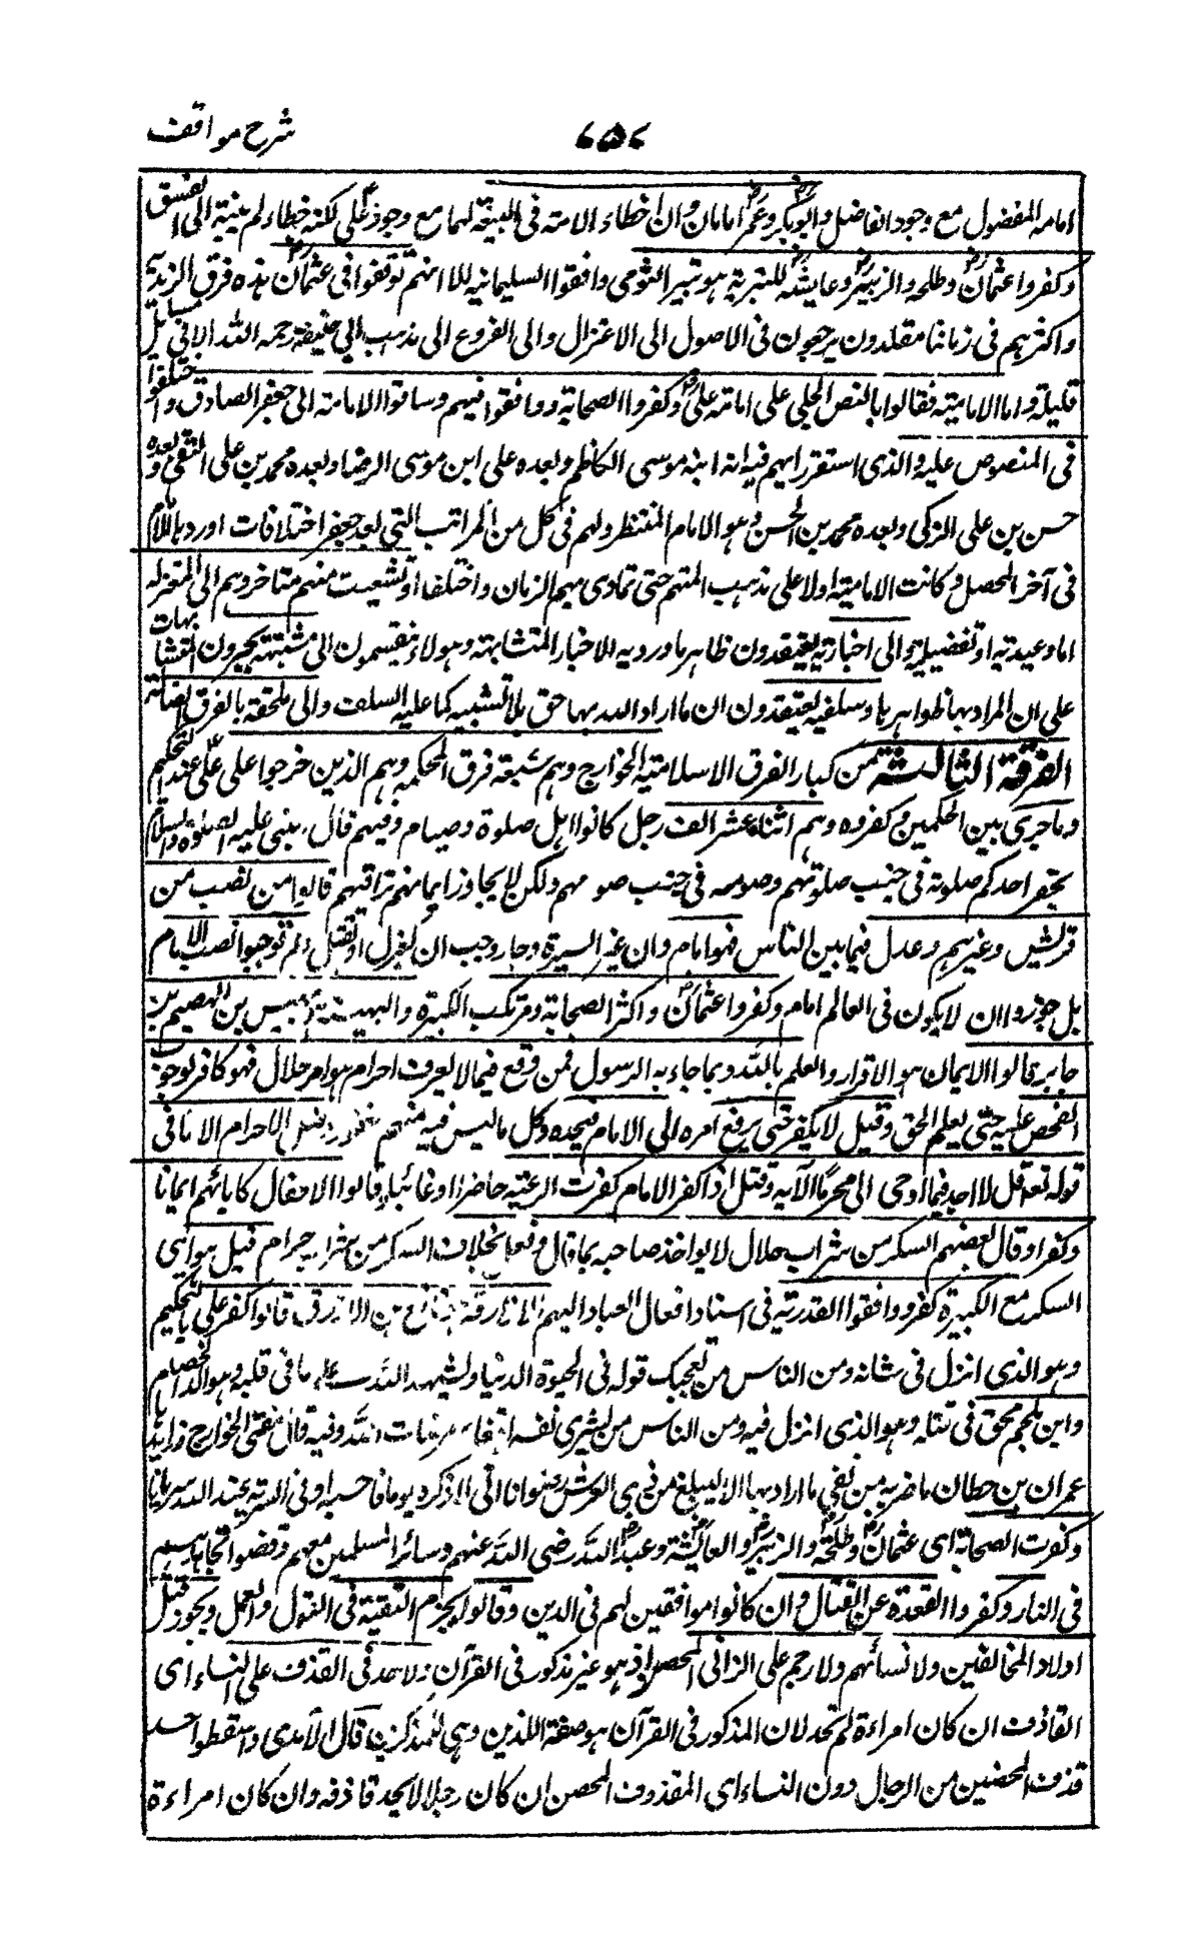 شرح مواقف
٧٥٧
امامة المفضول مع وجود الفاضل وابوبكر وعمر امامان وان اخطاء الامة فى البيعة لهما مع وجود على لكنه خطاء لم ينته الى الفسق
وكفروا عثمان وطلحه والزبير وعايشه البتيرية هو بتير الثومى وافقوا السليمانيه الا انهم توقفوا فى عثمان هذه فرق الزيدية
واكثرهم فى زماننا مقلدون يرجعون فى الاصول الى الاعتزال والى الفروع الى مذهب ابى حنيفه رحمه الله الا فى مسايل
قليلة واما الامامية فقالوا بالنص الجلى على امامة على وكفروا الصحابة ووافقوا فيهم وساقوا الامامة الى جعفر الصادق واختلفوا
فى المنصوص عليه والذى استقر رايهم فيه انه ابنه موسى الكاظم وبعده على ابن موسى الرضا وبعده محمد بن على التقى وبعده
حسن بن على الزكى وبعده محمد بن الحسن وهو الامام المنتظر ولهم فى كل من المراتب التى بعد جعفر اختلافات اوردها الامام
فى آخر المحصل وكانت الامامية اولا على مذهب ائمتهم حتى تمادى بهم الزمان واختلفوا وتشعبت منهم متاخروهم الى المعتزله
اما وعيدية او تفضيلية والى اخبارية يعتقدون ظاهر ما ورد به الاخبار المتشابهة وهولاء ينقسمون الى مشبهة يجرون المتشابهات
على ان المراد بها ظواهرها وسلفيه يعتقدون ان ما اراد الله بها حق بلا تشبيه كما عليه السلف والى ملتحقة بالفرق الضالة
الفرقة الثالثة من كبار الفرق الاسلامية الخوارج وهم سبعة فرق المحكمه وهم الذين خرجوا على على عند التحكيم
وما جرى بين الحكمين وكفروه وهم اثنا عشر الف رجل كانوا اهل صلوة وصيام وفيهم قال النبى عليه الصلوة والسلام
يحقر احدكم صلوته فى جنب صلوتهم وصومه فى جنب صومهم ولكن لا يجاوز ايمانهم تراقيهم قالوا من نصب من
قريش وغيرهم وعدل فيما بين الناس فهو امام وان غير السيرة وجار وجب ان يعزل او يقتل ولم توجبوا نصب الامام
بل جوزوا ان لا يكون فى العالم امام وكفروا عثمان واكثر الصحابة ومرتكب الكبيرة والبيهسية بيهس بن الهيصم بن
جابر قالوا الايمان هو الاقرار والعلم بالله وبما جاء به الرسول فمن وقع فيما لا يعرف احرام هو ام حلال فهو كافر لوجوب
الفحص عليه حتى يعلم الحق وقيل لا يكفر حتى يرفع امره الى الامام فيحده وكل ما ليس فيه الاحرام الا ما فى
قوله تعم قل لا اجد فيما اوحى الى محرما الآيه وقيل اذا كفر الامام كفرت الرعية حاضرا او غائبا وقالوا الاطفال كابائهم ايمانا
وكفرا وقال بعضهم السكر من شراب حلال لا يواخذ صاحبه بما قال وفعل بخلاف السكر من شراب حرام قيل هو اى
السكر مع الكبيرة كفر ووافقوا القدرية فى اسناد افعال العباد اليهم الازارقة نافع بن الازرق قالوا كفر على بالتحكيم
وهو الذى انزل فى شانه ومن الناس من يعجبك قوله فى الحيوة الدنيا ويشهد الله على ما فى قلبه وهو الد الخصام
وابن ملجم محق فى قتله وهو الذى انزل فيه ومن الناس من يشرى نفسه ابتغاء مرضات الله وفيه قال مفتى الخوارج وزاهدها
عمران بن حطان يا ضربة من تقى ما اراد بها الا ليبلغ من ذى العرش رضوانا انى لاذكره يوما فاحسبه اوفى البرية عند الله ميزانا
وكفرت الصحابة اى عثمان وطلحة والزبير والعايشة وعبد الله رضى الله عنهم وسائر المسلمين معهم وقضوا بتخليدهم
فى النار وكفروا القعدة عن القتال وان كانوا موافقين لهم فى الدين وقالوا يحرم التقية فى القول والعمل ويجوز قتل
اولاد المخالفين ولا نسائهم ولا رجم على الزانى المحصن اذ هو غير مذكور فى القرآن ولا حد فى القذف على النساء اى
القاذف ان كان امراءة لم تحد لان المذكور فى القرآن هو صفة اللذين وهى للمذكرين قال الآمدى واسقطوا حد
قذف المحصنين من الرجال دون النساء اى المقذوف المحصن ان كان رجلا لا يحد قاذفه وان كان امراءة